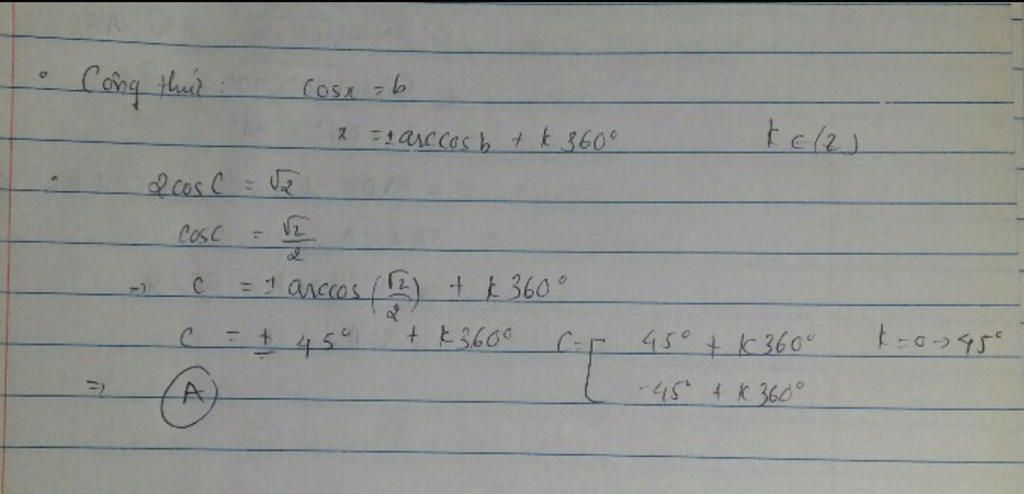 • Công thức: cosx = b
x = ± arccosb + k 360° k ∈ (Z)
• 2cosC = √2
cosC = √2/2
→ C = ± arccos (√2/2) + k 360°
C = ± 45° + k360° C = [ 45° + k360° k=0 → 45°
-45° + k360°
=> A